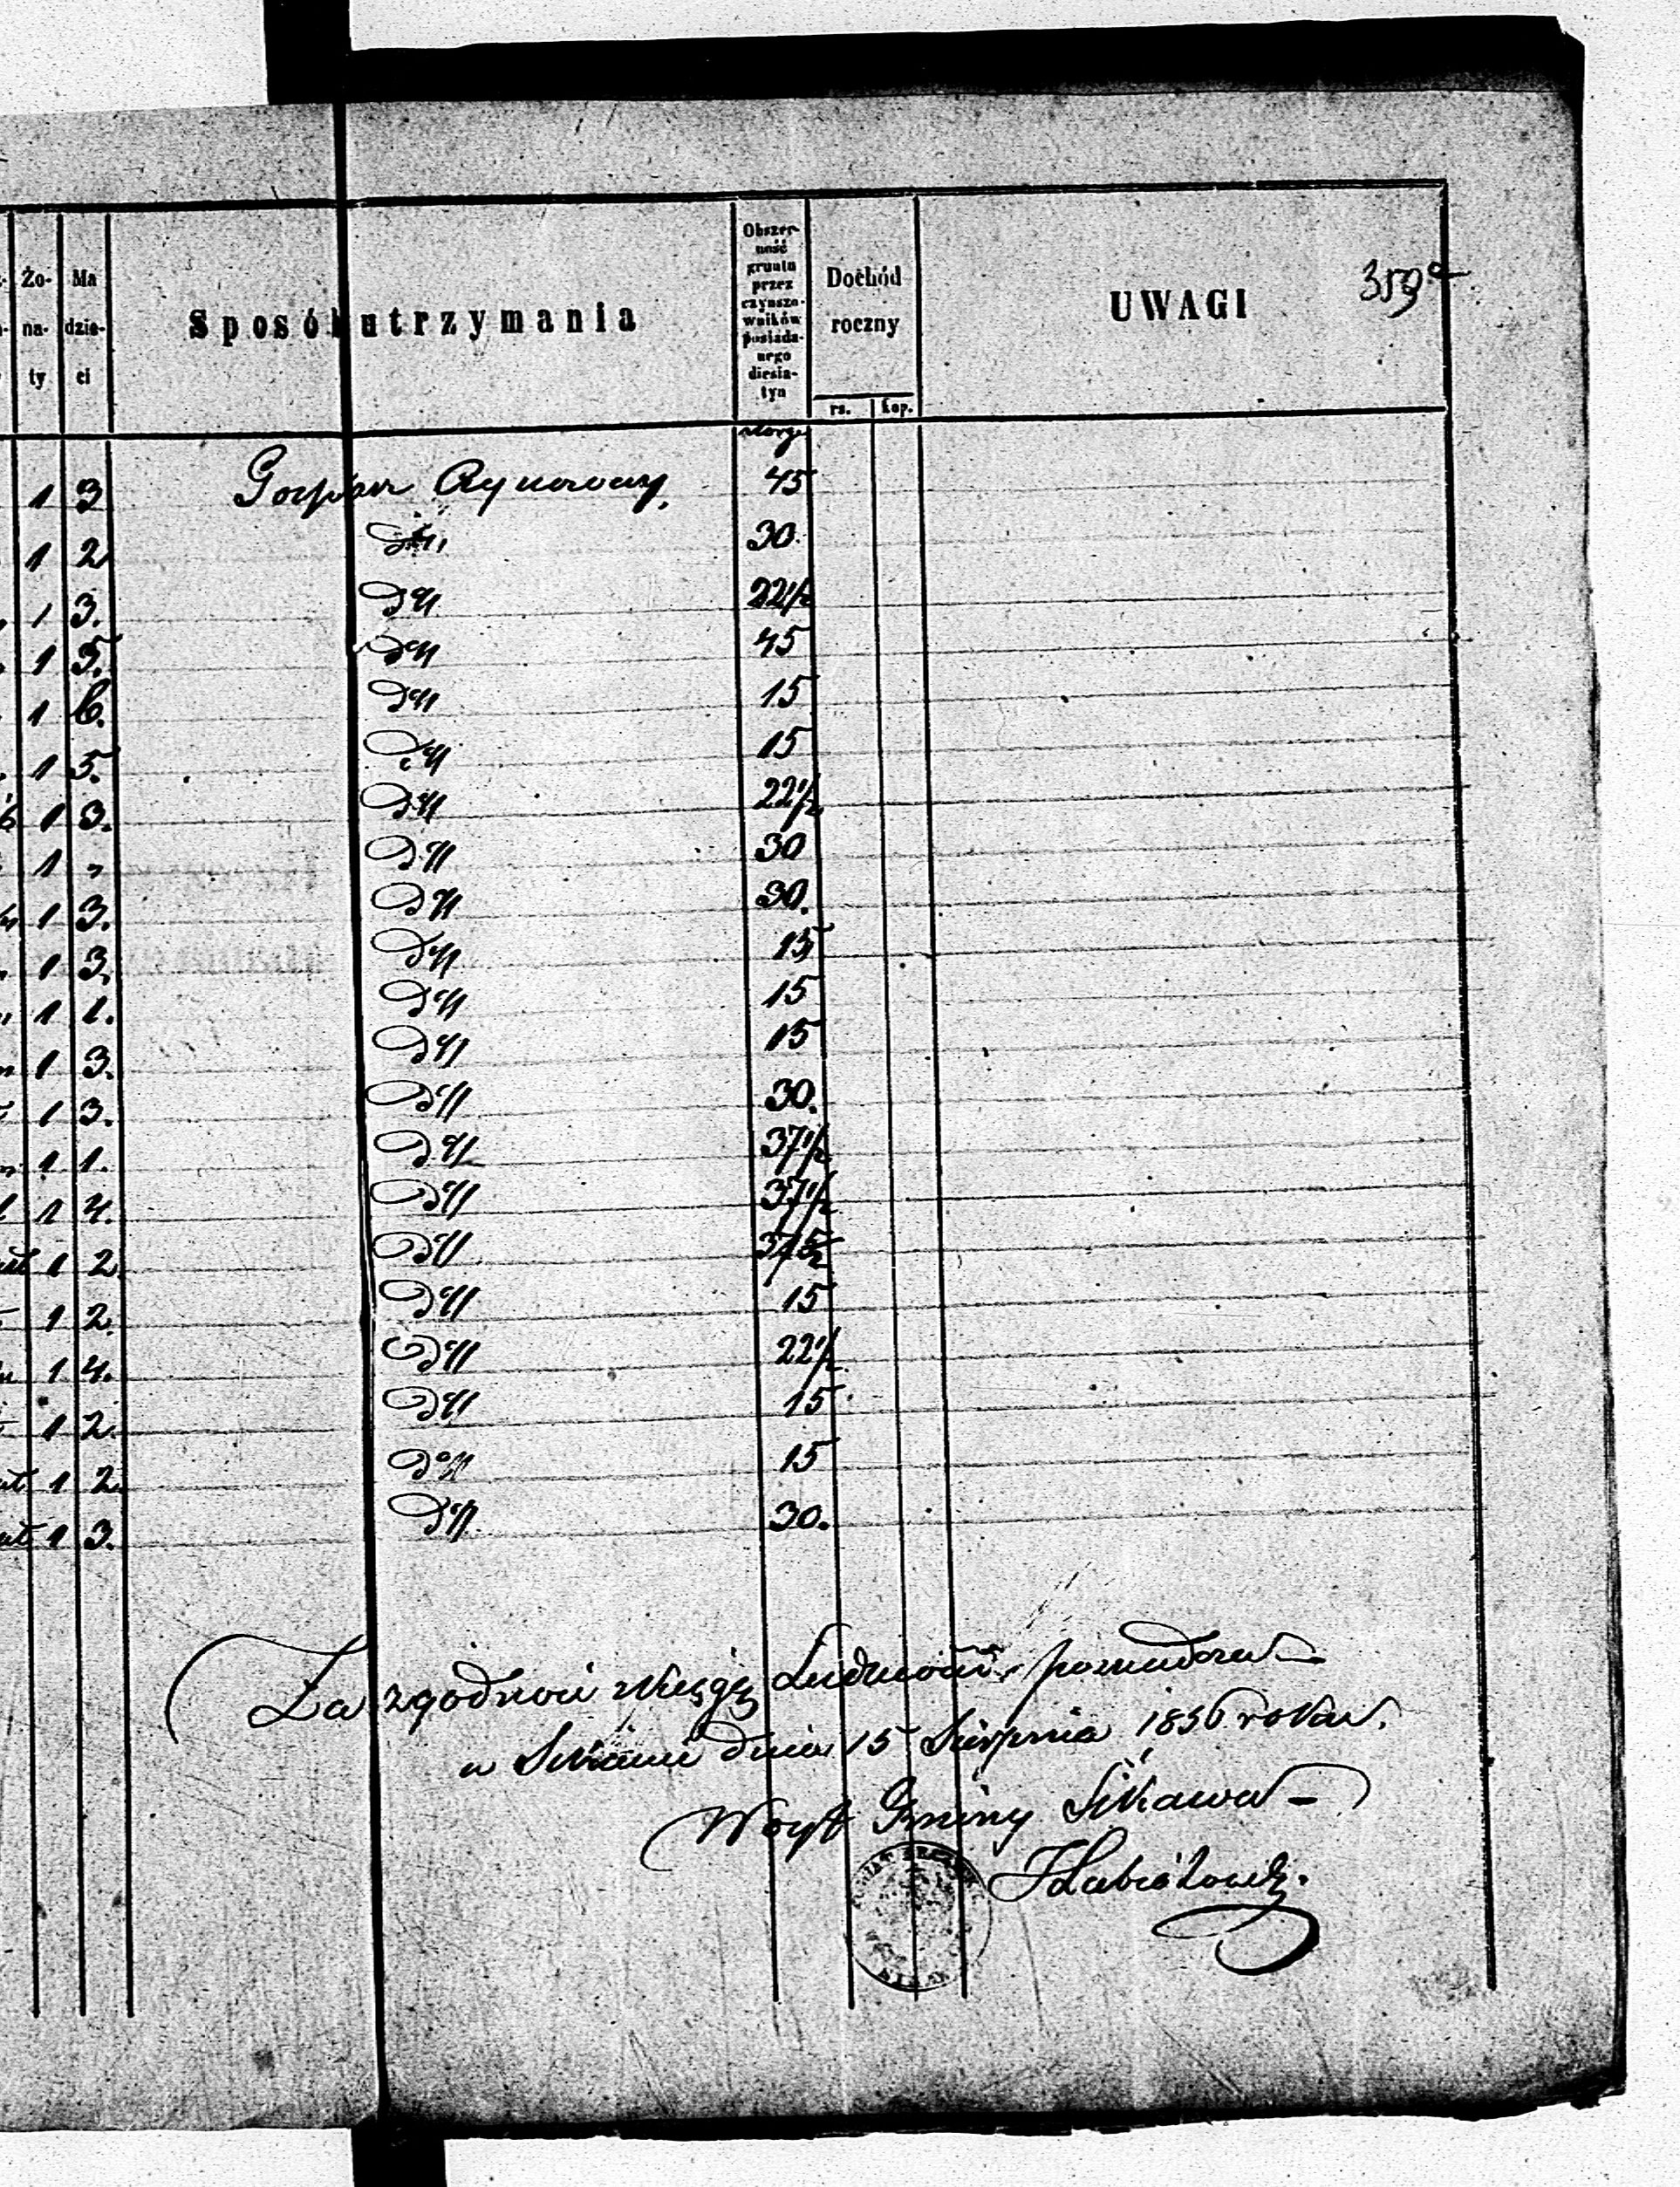 Żo-
na-
ty
Ma
dzie-
ci
Sposób utrzymania
Obszer-
ność
gruntu
przez
czynszo-
wników
posiada-
nego
diesia-
tyn
Dochód
roczny
rs. kop.
UWAGI
359
Morg
1 3 45
1 2 30.
1 3. dtt 22 1/2
1 5. dtt 45
1 6. dtt 15
1 5. dtt 15
1 3. dtt 22 1/2
1 " dtt 30
1 3. dtt 30.
1 3. dtt 15
1 1. dtt 15
1 3. dtt 15
1 3. dtt 30.
1 1. dtt 37 1/2
1 4. dtt 37 1/2
1 2 dtt 37 1/2
1 2. dtt 15
1 4. dtt 22 1/2
1 2. dtt 15
1 2. dtt 15
1 3. dtt 30.
Za zgodność z Księgą Ludności poświadcza
w Sikawie dnia 15 Sierpnia 1856 roku.
Woyt Gminy Sikawa